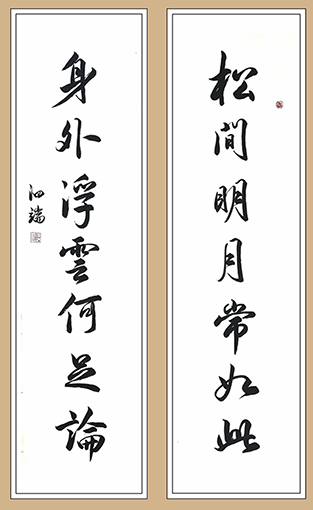 松間明月常如此
身外浮雲何足論